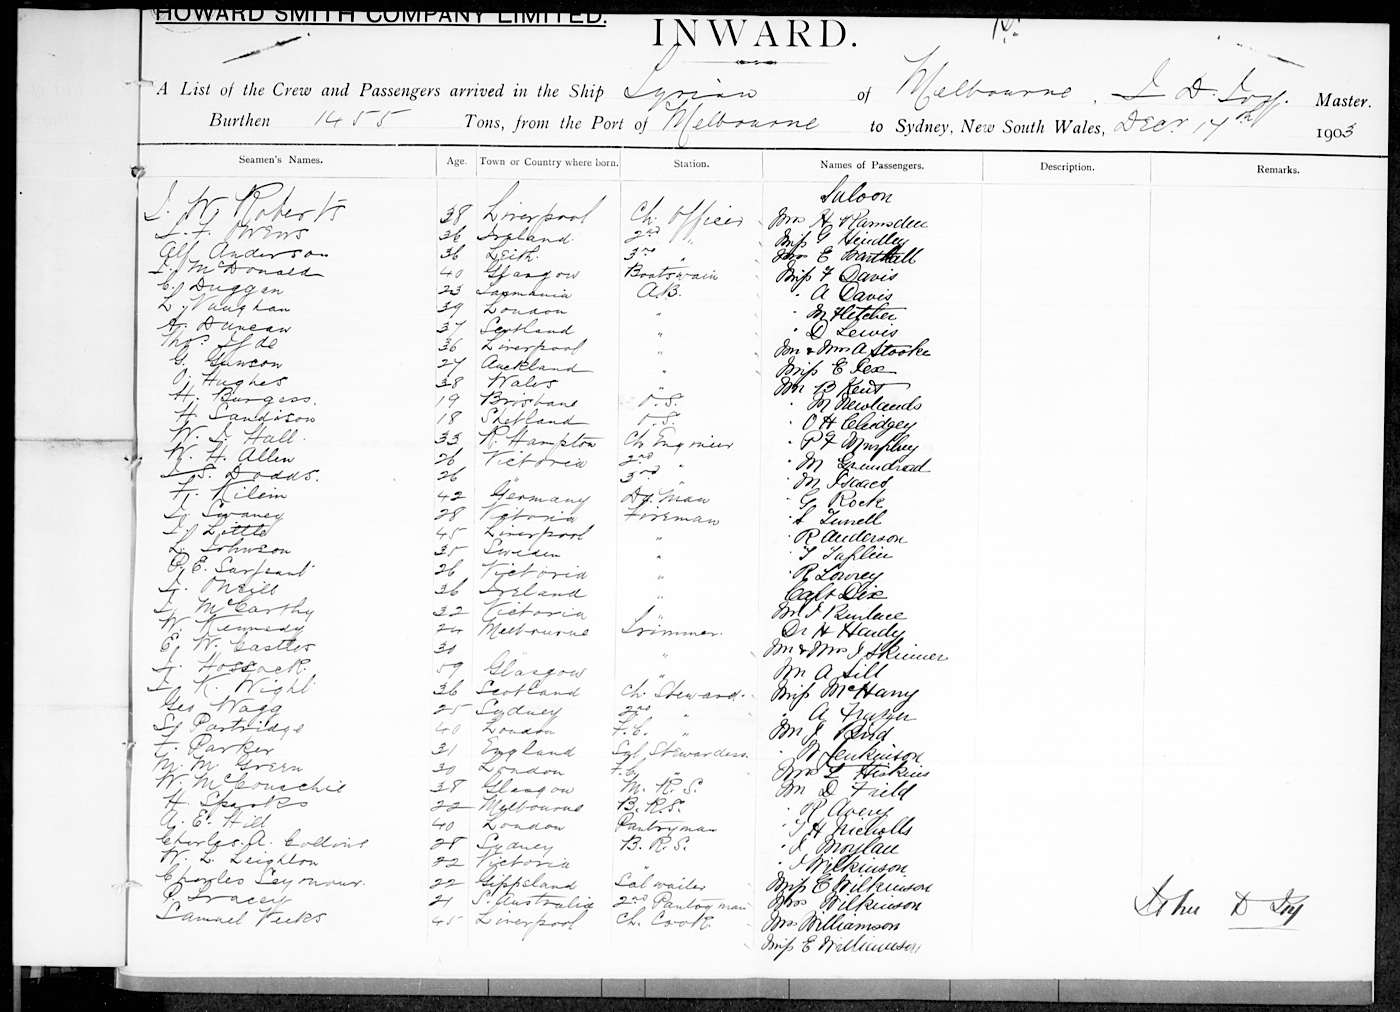 HOWARD SMITH COMPANY LIMITED.
INWARD.
A List of the Crew and Passengers arrived in the Ship Syrian of Melbourne, J. D. Master.
Burthen 1455 Tons, from the Port of Melbourne to Sydney, New South Wales, Decr 17th 1903
Seamen's Names. Age. Town or Country where born. Station. Names of Passengers. Description. Remarks.
Saloon
J. W. Roberts 38 Liverpool Ch. Officer Mrs H Ramsden
J. F. Owens 36 Ireland 2nd " Miss G Hindley
Alf Anderson 36 Leith 3rd " Mrs E
J. McDonald 40 Glasgow Boatswain Miss F Davis
C. Duggan 23 Tasmania A.B. " A Davis
L. Vaughan 39 London " " M Fletcher
A. Duncan 37 Scotland " " D Lewis
Thos. 36 Liverpool " Mr & Mrs A Stooke
G. Gunson 27 Auckland " Miss E Dex
O. Hughes 38 Wales " Mr B Kent
H. Burgess. 19 Brisbane O.S. " M Newlands
H. Sandison 18 Shetland O.S. " O H Chidgey
W. J. Hall 33 R. Hampton Ch Engineer " P F Murphy
W. H. Allen 26 Victoria 2nd " " M Grundrod
J. S. Dodds. 26 " 3rd " " M Isaacs
F. Kilein 42 Germany Dy. Man " G Rock
J. Swaney 28 Victoria Fireman " S Tunell
J. Little 45 Liverpool " " R Anderson
L. Johnson 35 Sweden " " T Taplin
R. E. Sargeant 26 Victoria " " R Lowrey
J. Oneill 36 Ireland " Capt Dix
J. McCarthy 32 Victoria " Mr J
W. Kennedy 24 Melbourne Trimmer. Dr H Hardy
E. W. Castles 30 " " Mr & Mrs J Skinner
J. Hossack. 59 Glasgow " Mr A Sill
J. K. Wight 36 Scotland Ch. Steward. Miss McHarry
Geo Wagg 25 Sydney 2nd " " A Frazer
S. Partridge 40 London F.C. " Mr J Bird
F. Parker 31 England Sal Stewardess. " W Jenkinson
M. M. Green 30 London F.C. " Mrs L Hiskins
W. McConachie 38 Glasgow M. R. S. Mr D Field
H. Sparks 22 Melbourne B. R.S. " R Avery
A. E. Hill 40 London Pantryman " T H Nicholls
Charles A. Collins 28 Sydney B. R.S. " J Moylan
W. L. Leighton 22 Victoria " " J Wilkinson
Charles Seymour. 22 Gippsland Sal waiter Miss E Wilkinson
P. Tracey 21 S. Australia 2nd Pantryman Mrs Wilkinson
Samuel Veeks 45 Liverpool Ch. Cook. Mrs Williamson
Miss E Williamson
John D